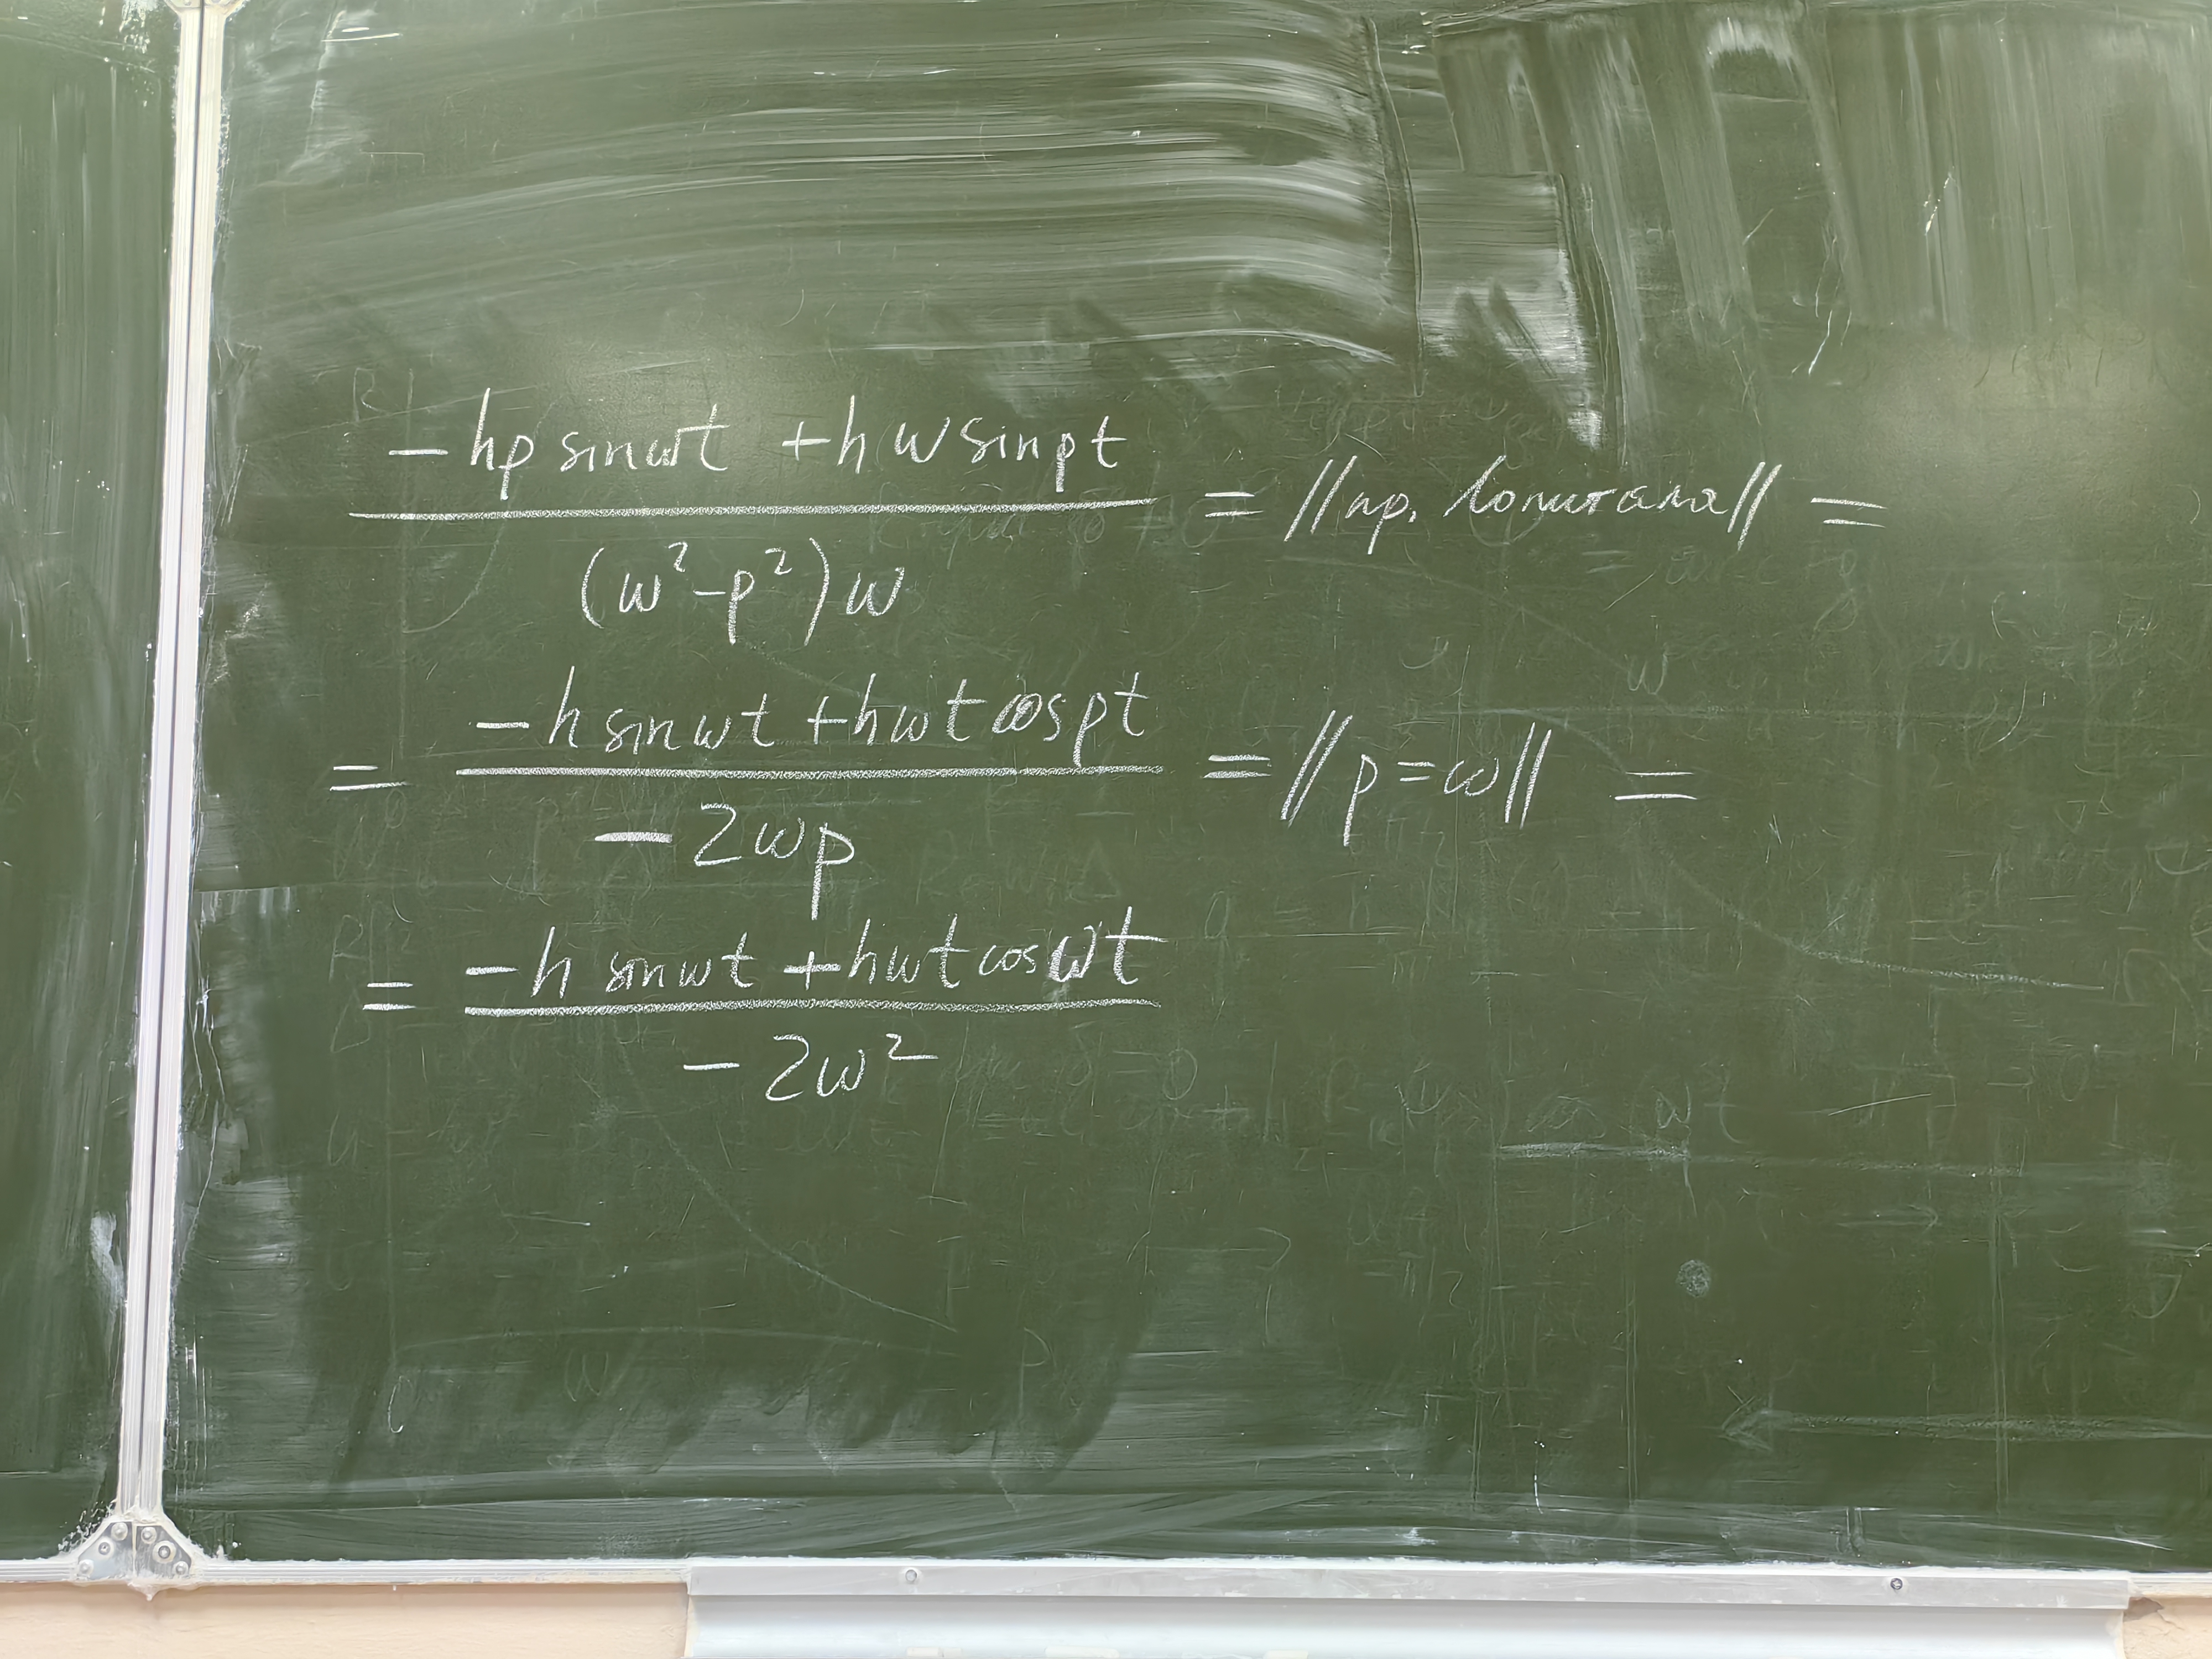 (-hp sin ωt + hω sin pt) / ((ω² - p²)ω) = // пр. Лопиталя // =
= (-h sin ωt + hωt cos pt) / (-2ωp) = // p = ω // =
= (-h sin ωt + hωt cos ωt) / (-2ω²)